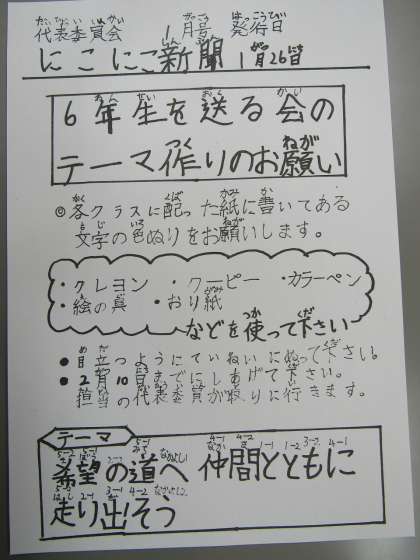 代表委員会 1月号 発行日
にこにこ新聞 1月26日
6年生を送る会の
テーマ作りのお願い
◎各クラスに配った紙に書いてある
文字の色ぬりをお願いします。
・クレヨン ・クーピー ・カラーペン
・絵の具 ・おり紙
などを使って下さい
●目立つようにていねいにぬって下さい。
●2月10日までにしあげて下さい。
担当の代表委員が取りに行きます。
テーマ
希望の道へ 仲間とともに
走り出そう